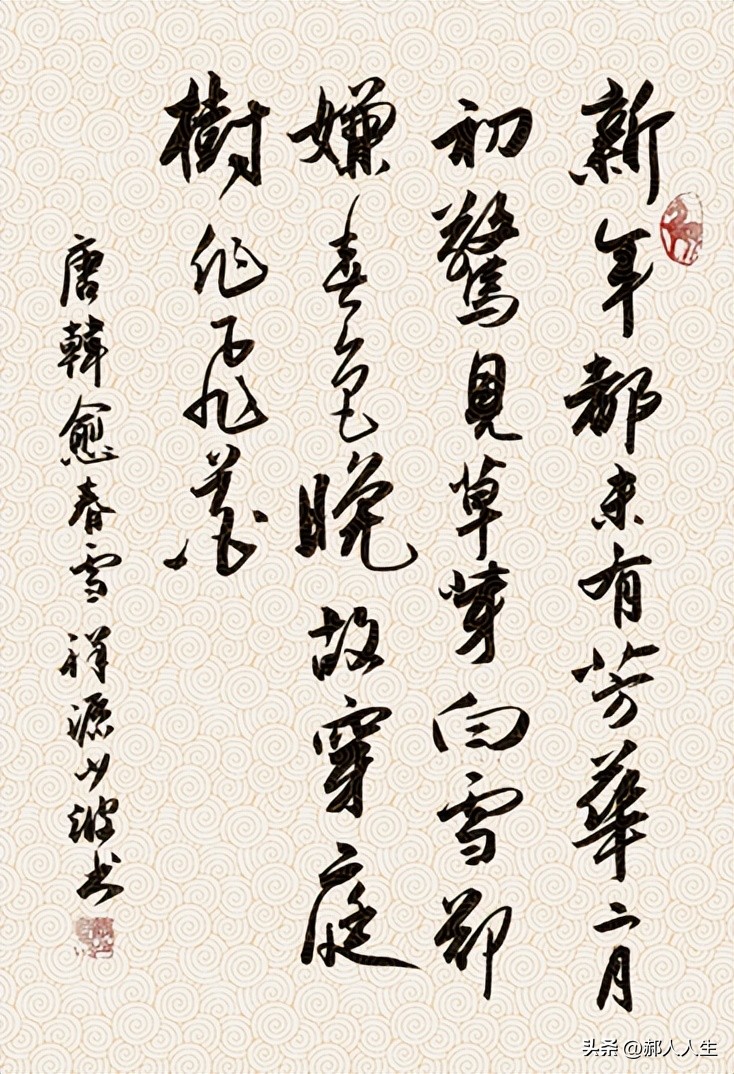 新年都未有芳華二月
初驚見草芽白雪卻
嫌春色晚故穿庭
樹作飛花
唐韓愈春雪祥源少波书
头条 @郝人人生